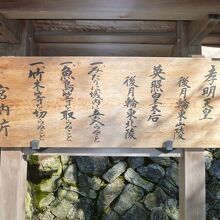 孝明天皇
後月輪東山陵
英照皇太后
後月輪東北陵
一みだりに域内に立入らぬこと
一魚鳥等を取らぬこと
一竹木等を切らぬこと
宮内庁